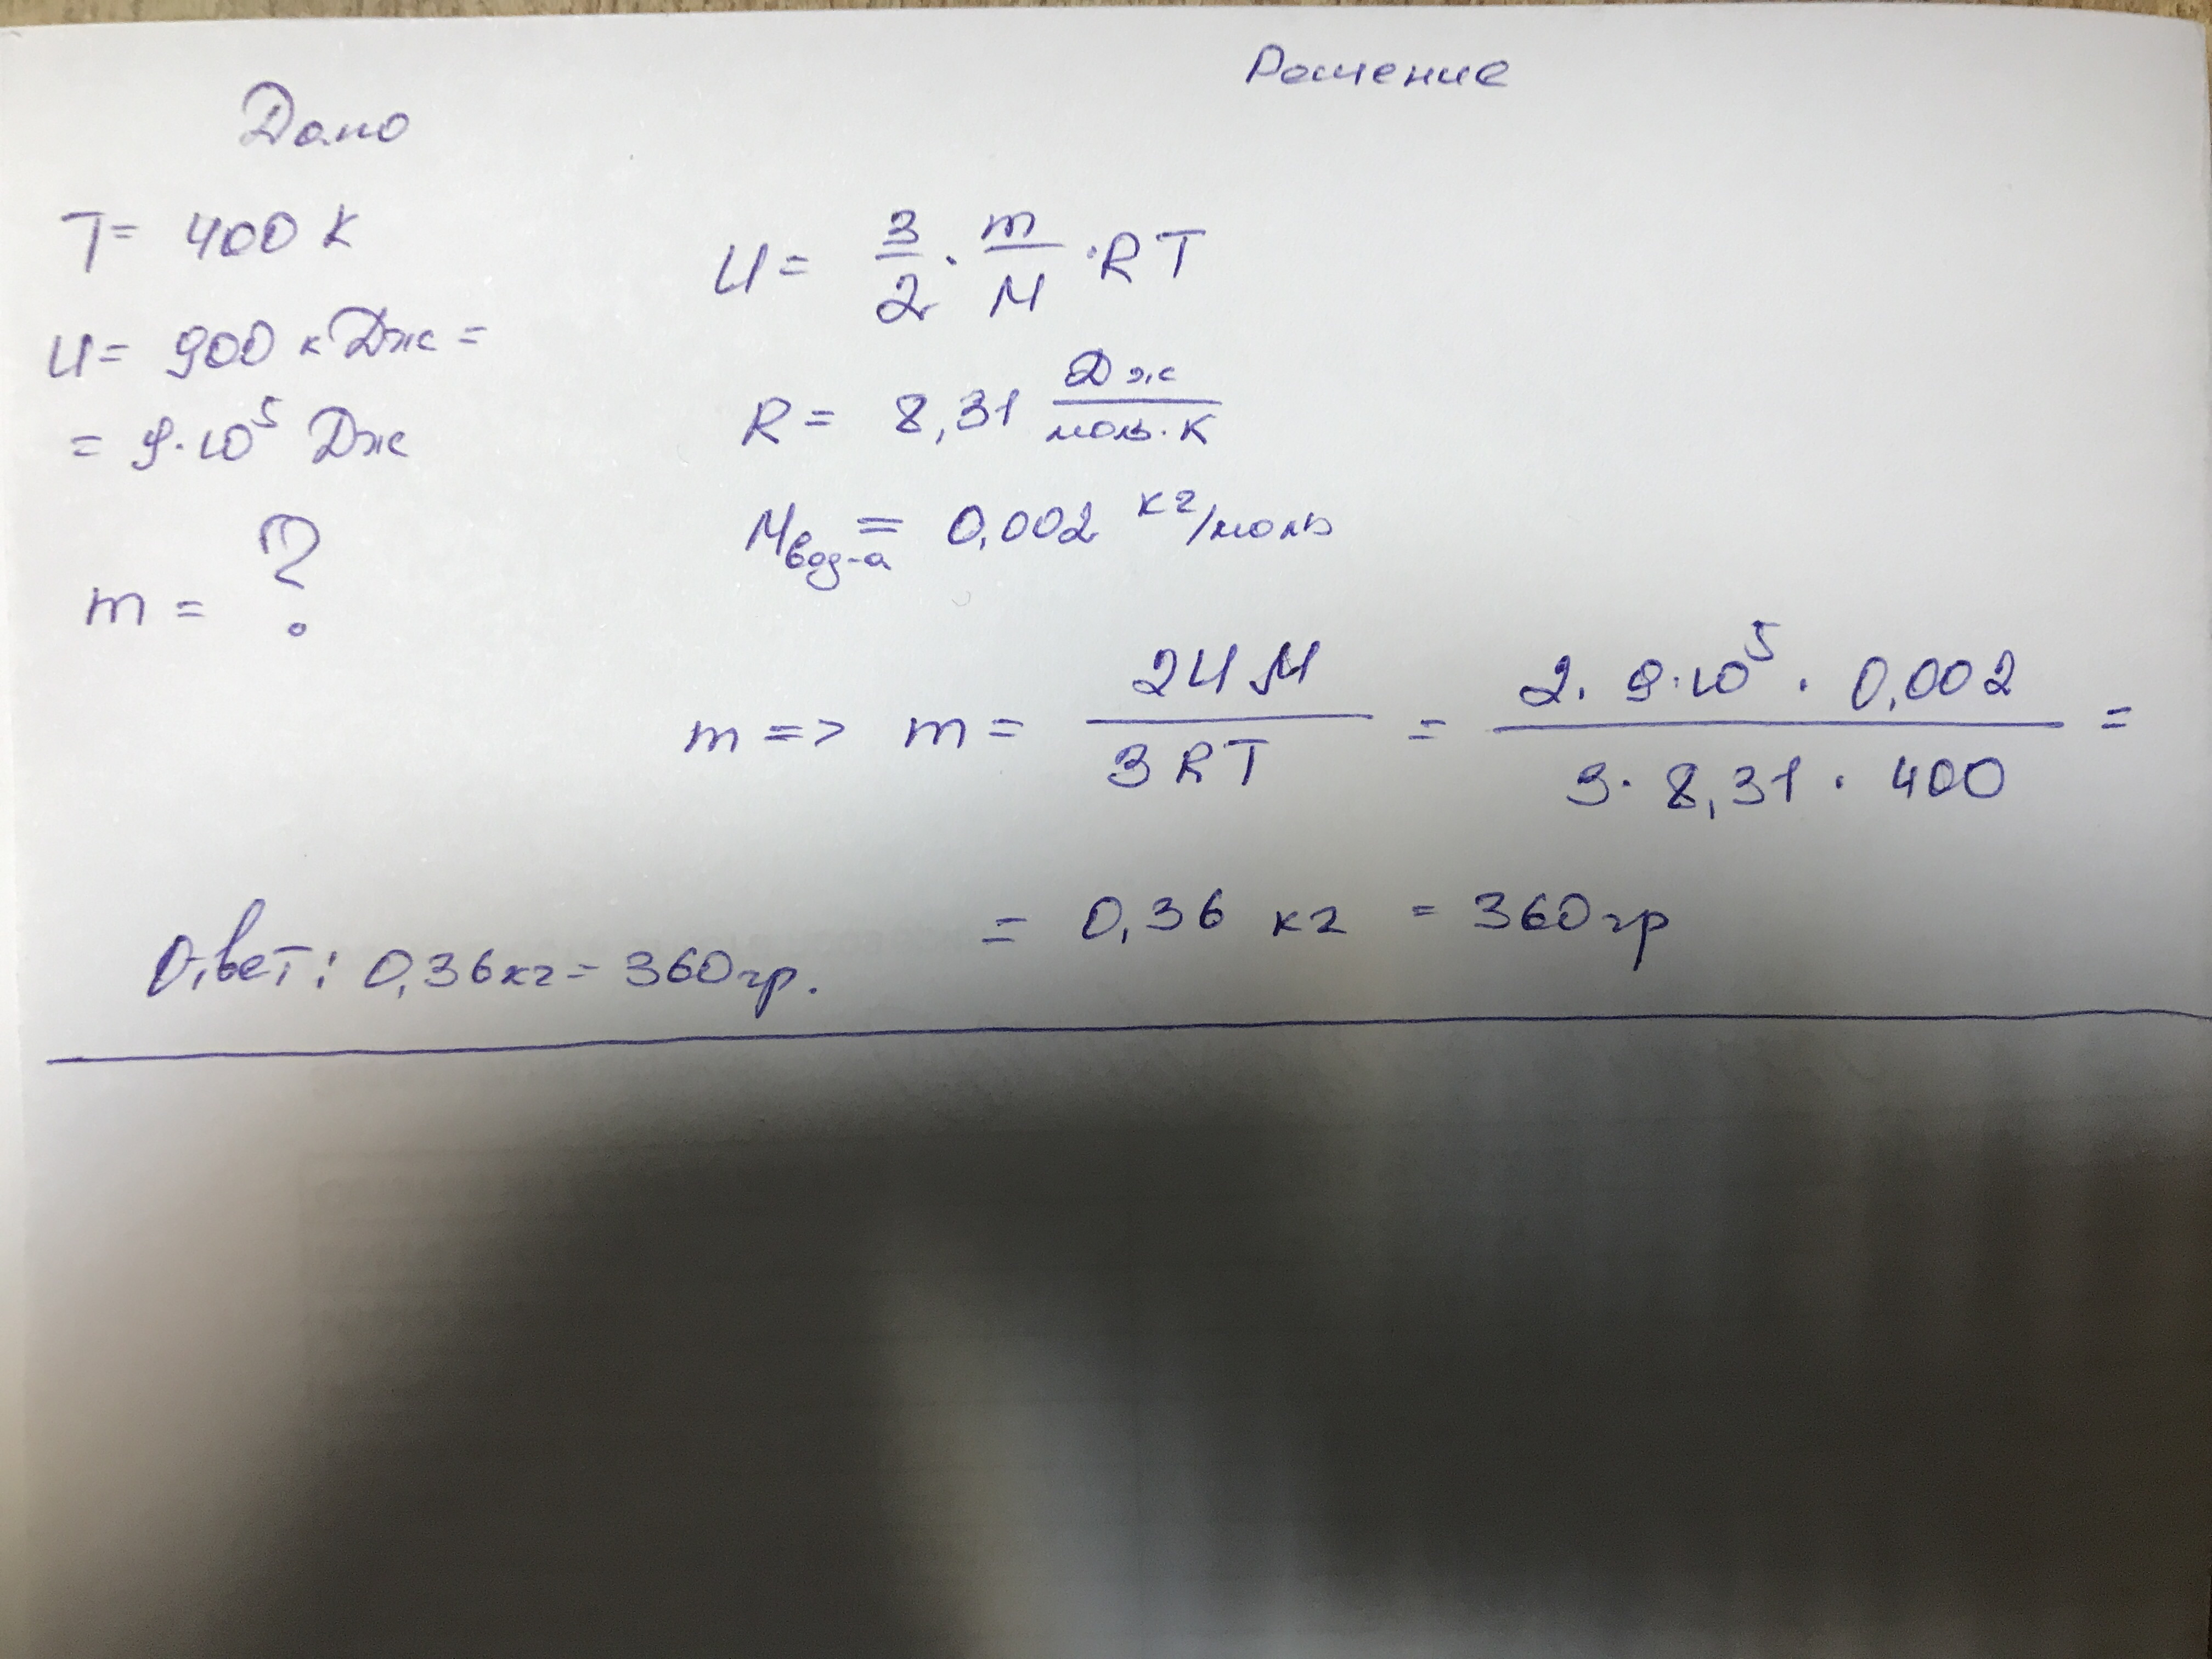 Решение
Дано
T = 400 К
U = 900 кДж =
= 9·10⁵ Дж
m = ?
U = 3/2 · m/M · RT
R = 8,31 Дж/моль·К
Mвод-а = 0,002 кг/моль
m => m = 2UM/3RT = 2·9·10⁵·0,002/3·8,31·400 =
= 0,36 кг = 360гр
Ответ: 0,36кг = 360гр.